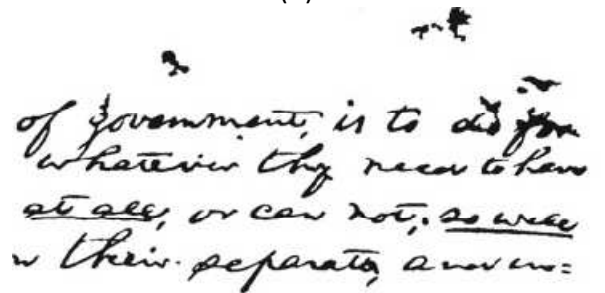 of government, is to do for
whatever they need to have
at all, or can not, so well
n their separate, and in=